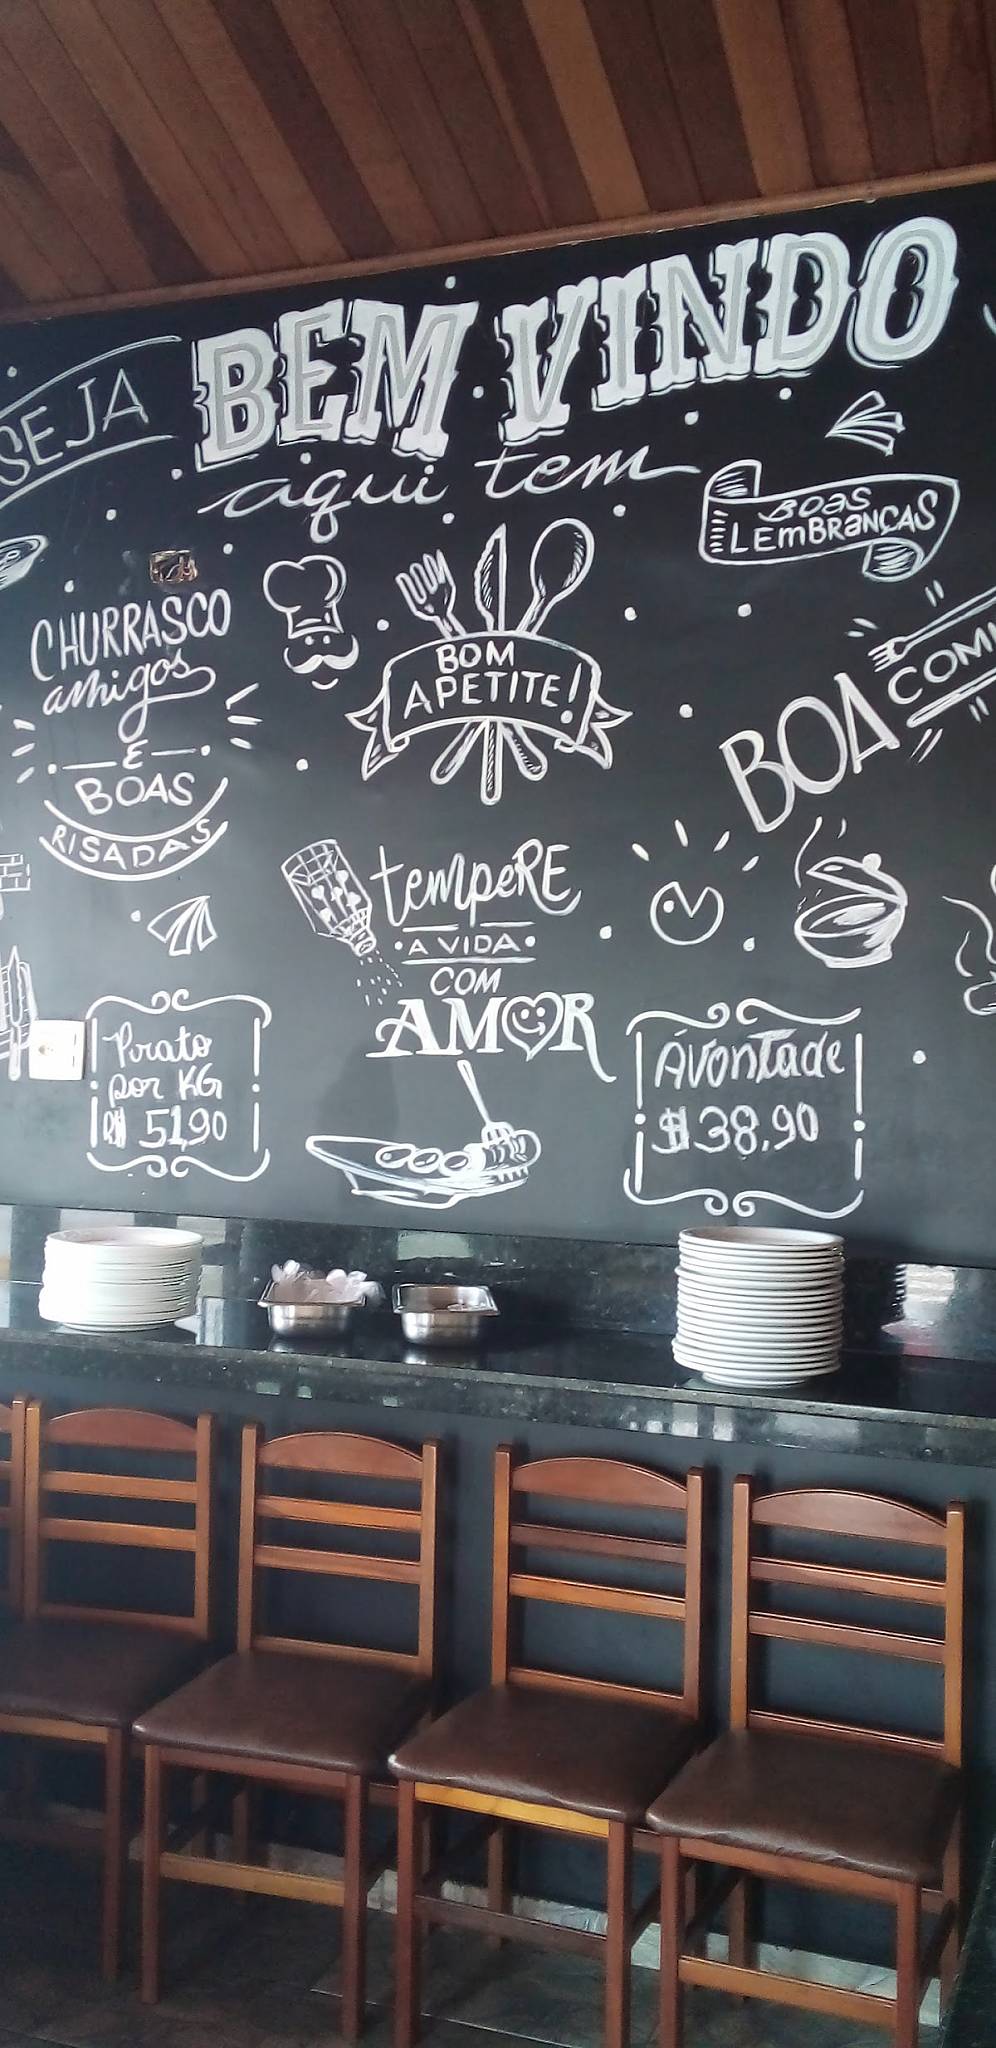 SEJA
BEM VINDO
aqui tem
BOAS
LEMBRANÇAS
CHURRASCO
amigos
E
BOAS
RISADAS
BOM
APETITE!
BOA
tempeRE
A VIDA
COM
AMOR
Prato
por KG
R$ 51,90
ÁVontade
$38,90